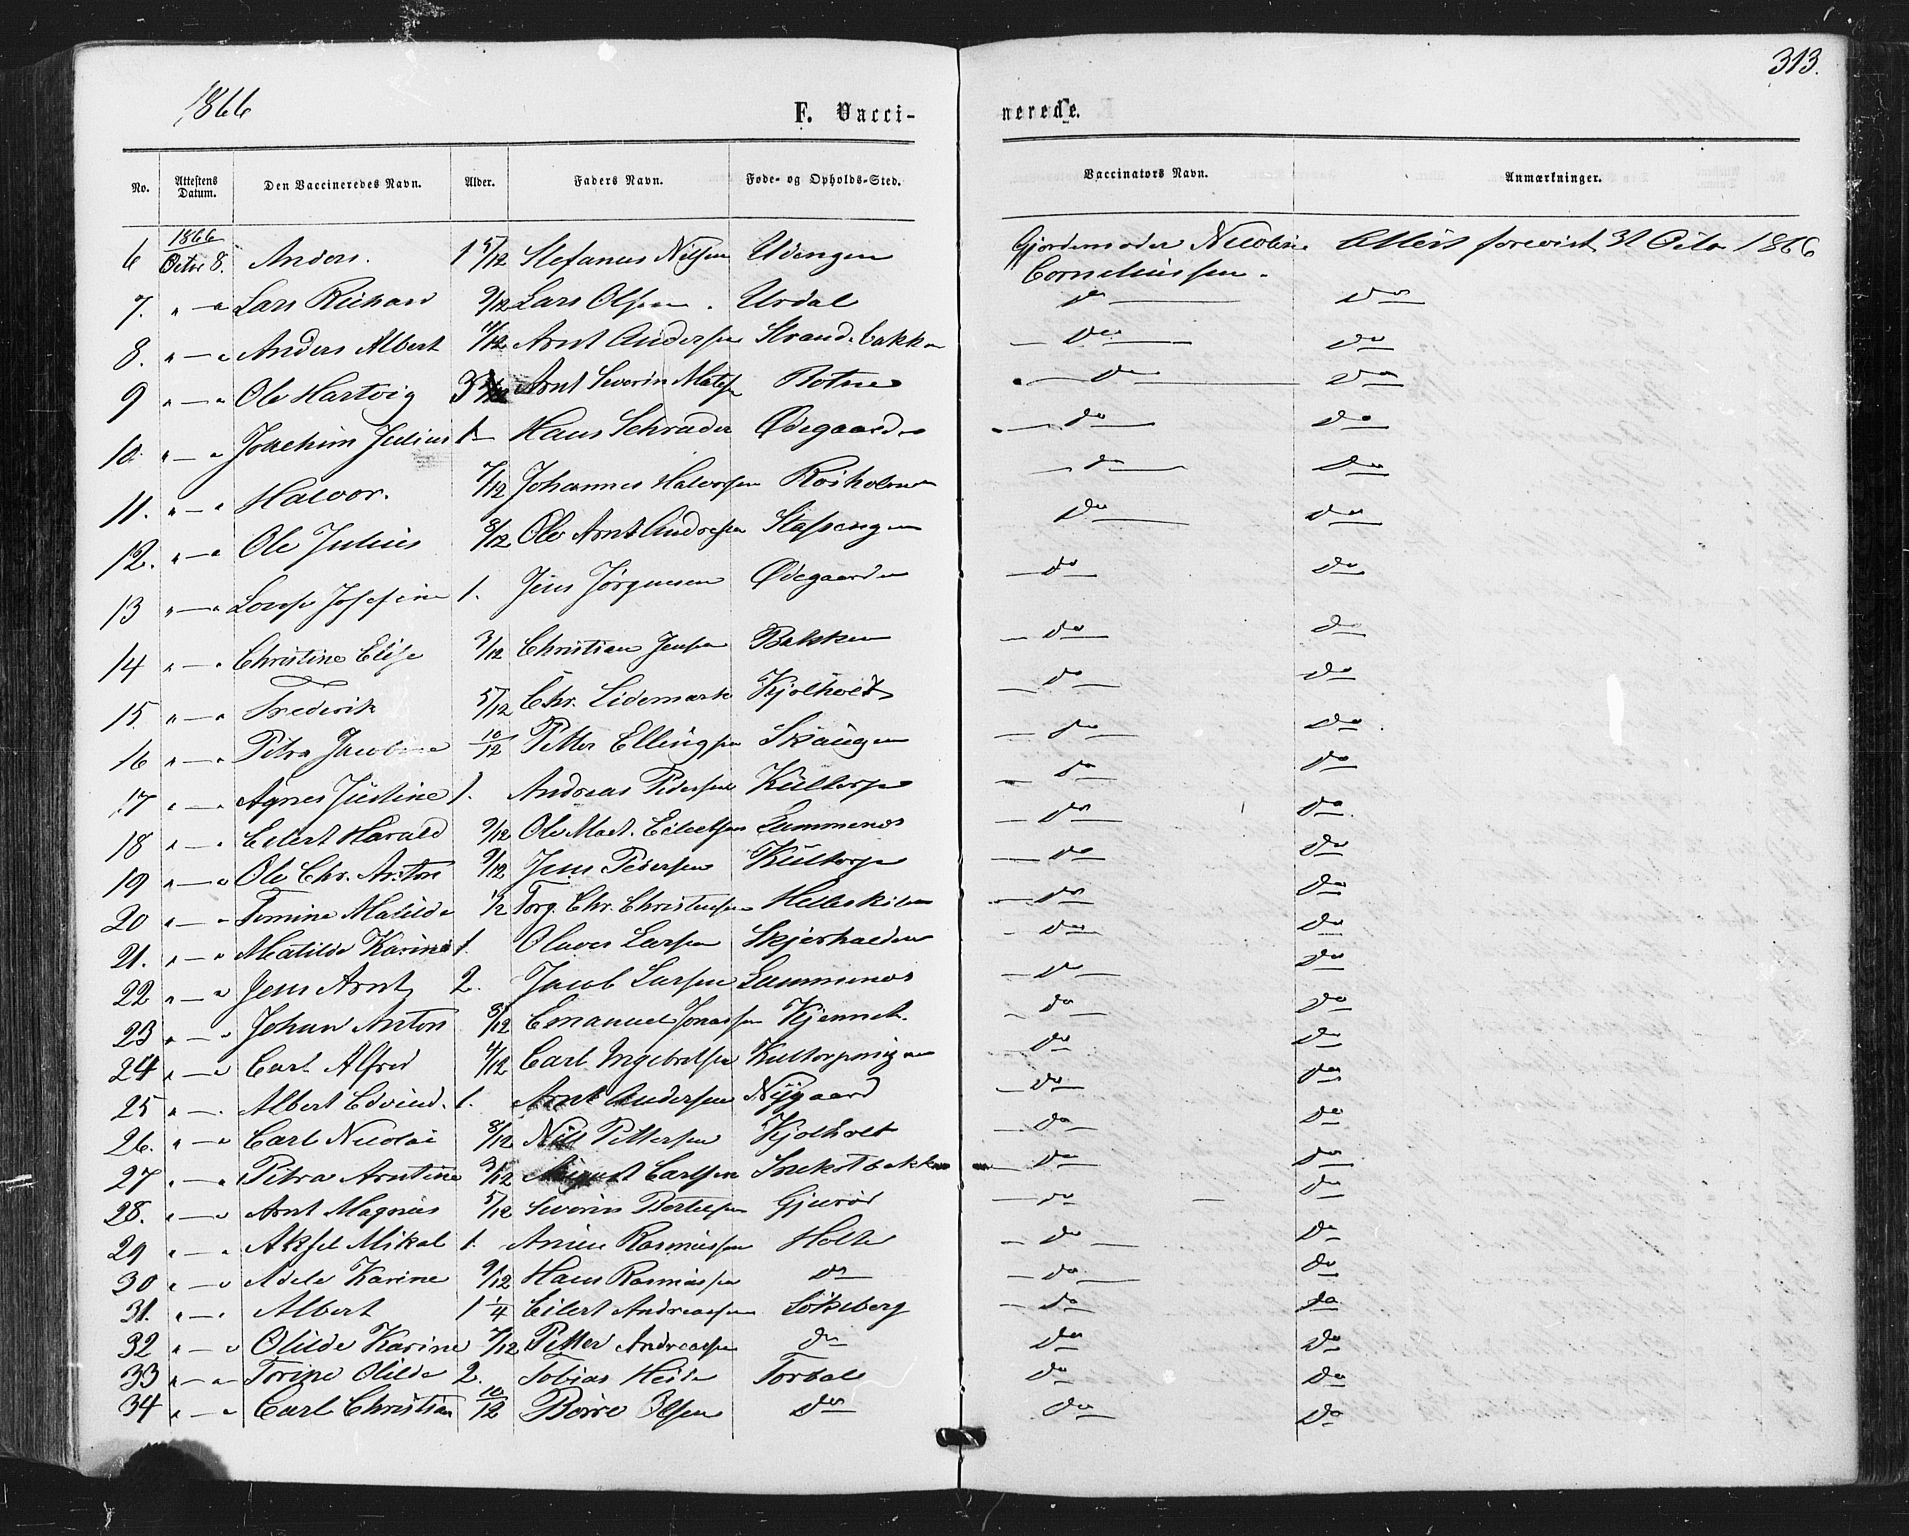 1866 F. Vacci- nerede. 313.
No. Attestens Datum. Den Vaccineredes Navn. Alder. Faders Navn. Føde- og Opholds-Sted. Vaccinators Navn. Anmærkninger.
6 1866 Octbr 8. Anders. 1 5/12 Stefanus Nilsen Udengen Gjordemoder Nicoline Corneliussen. Attest forevist 31 Octbr 1866
7. " — " Lars Richard 9/12 Lars Olsen. Urdal do do
8. " — " Anders Albert 4/12 Arnt Andersen Strandbakken do do
9 " — " Ole Hartvig 3 Arnt Severin Rotne do do
10. " — " Joachim Julius 1 Hans Schrader Ødegaarden do do
11. " — " Halvor. 7/12 Johannes Halvorsen Rosholmen do do
12. " — " Ole Julius 8/12 Ole Arnt Andresen Stafsengen do do
13 " — " Josefine 1. Jens Jørgensen Ødegaarden do do
14 " — " Christine Elise 3/12 Christian Jensen Bakken do do
15. " — " Frederik 5/12 Chr. Lidemark Kjølholt do do
16 " — " Petra Jacobine 10/12 Petter Ellingsen Skaugen do do
17 " — " Agnes Justine 1. Andreas Pedersen Kultorp do do
18 " — " Eilert Harald 9/12 Ole Mart. Eilertsen Lammenes do do
19 " — " Ole Chr. Anton 9/12 Jens Pedersen Kultorp do do
20 " — " Tomine Matilde 1/2 Torg. Chr. Christensen Hellekilen do do
21. " — " Matilde Karine 1. Olaves Larsen Skjærhalden do do
22 " — " Jens Arnt 2. Jacob Larsen Lammenes do do
23 " — " Johan Anton 8/12 Emanuel Jonassen Kjennet. do do
24 " — " Carl Alfred 4/12 Carl Ingebretsen do do
25 " — " Albert Edvind. 1. Arnt Andersen Nygaard do do
26. " — " Carl Nicolai 8/12 Nils Pettersen Kjølholt do do
27 " — " Petra Arntine 9/12 August Carlsen Snekstbakken do do
28. " — " Arnt Magnus 5/12 Severin Bertelsen Gjurød do do
29 " — " Aksel Mikal 1. Rasmussen Holte do do
30 " — " Adele Karine 9/12 Hans Rasmussen do do do
31. " — " Albert 1 1/4 Eilert Andreassen Lökeberg do do
32 " — " Olilde Karine 7/12 Petter Andreassen do do do
33 " — " Torine Olilde 2. Tobias Heide Tordal do do
34 " — " Carl Christian 10/12 Børre Olsen do do do